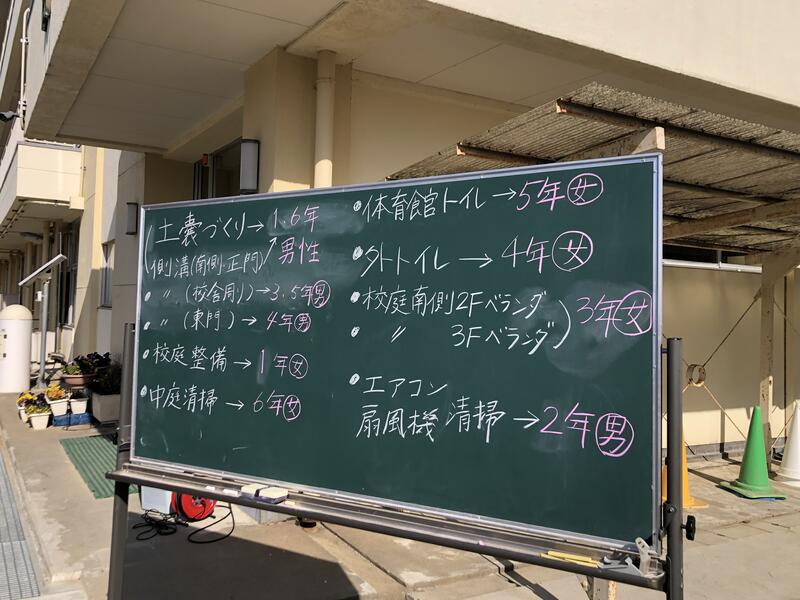 土嚢づくり→1.6年
側溝(南側・正門)↗男性
〃(校舎周り)→3.5年男
〃(東門)→4年男
・校庭整備→1年女
・中庭清掃→6年女
・体育館トイレ→5年女
・外トイレ→4年女
・校庭南側2Fベランダ
・〃 3Fベランダ)3年女
・エアコン
扇風機清掃→2年男